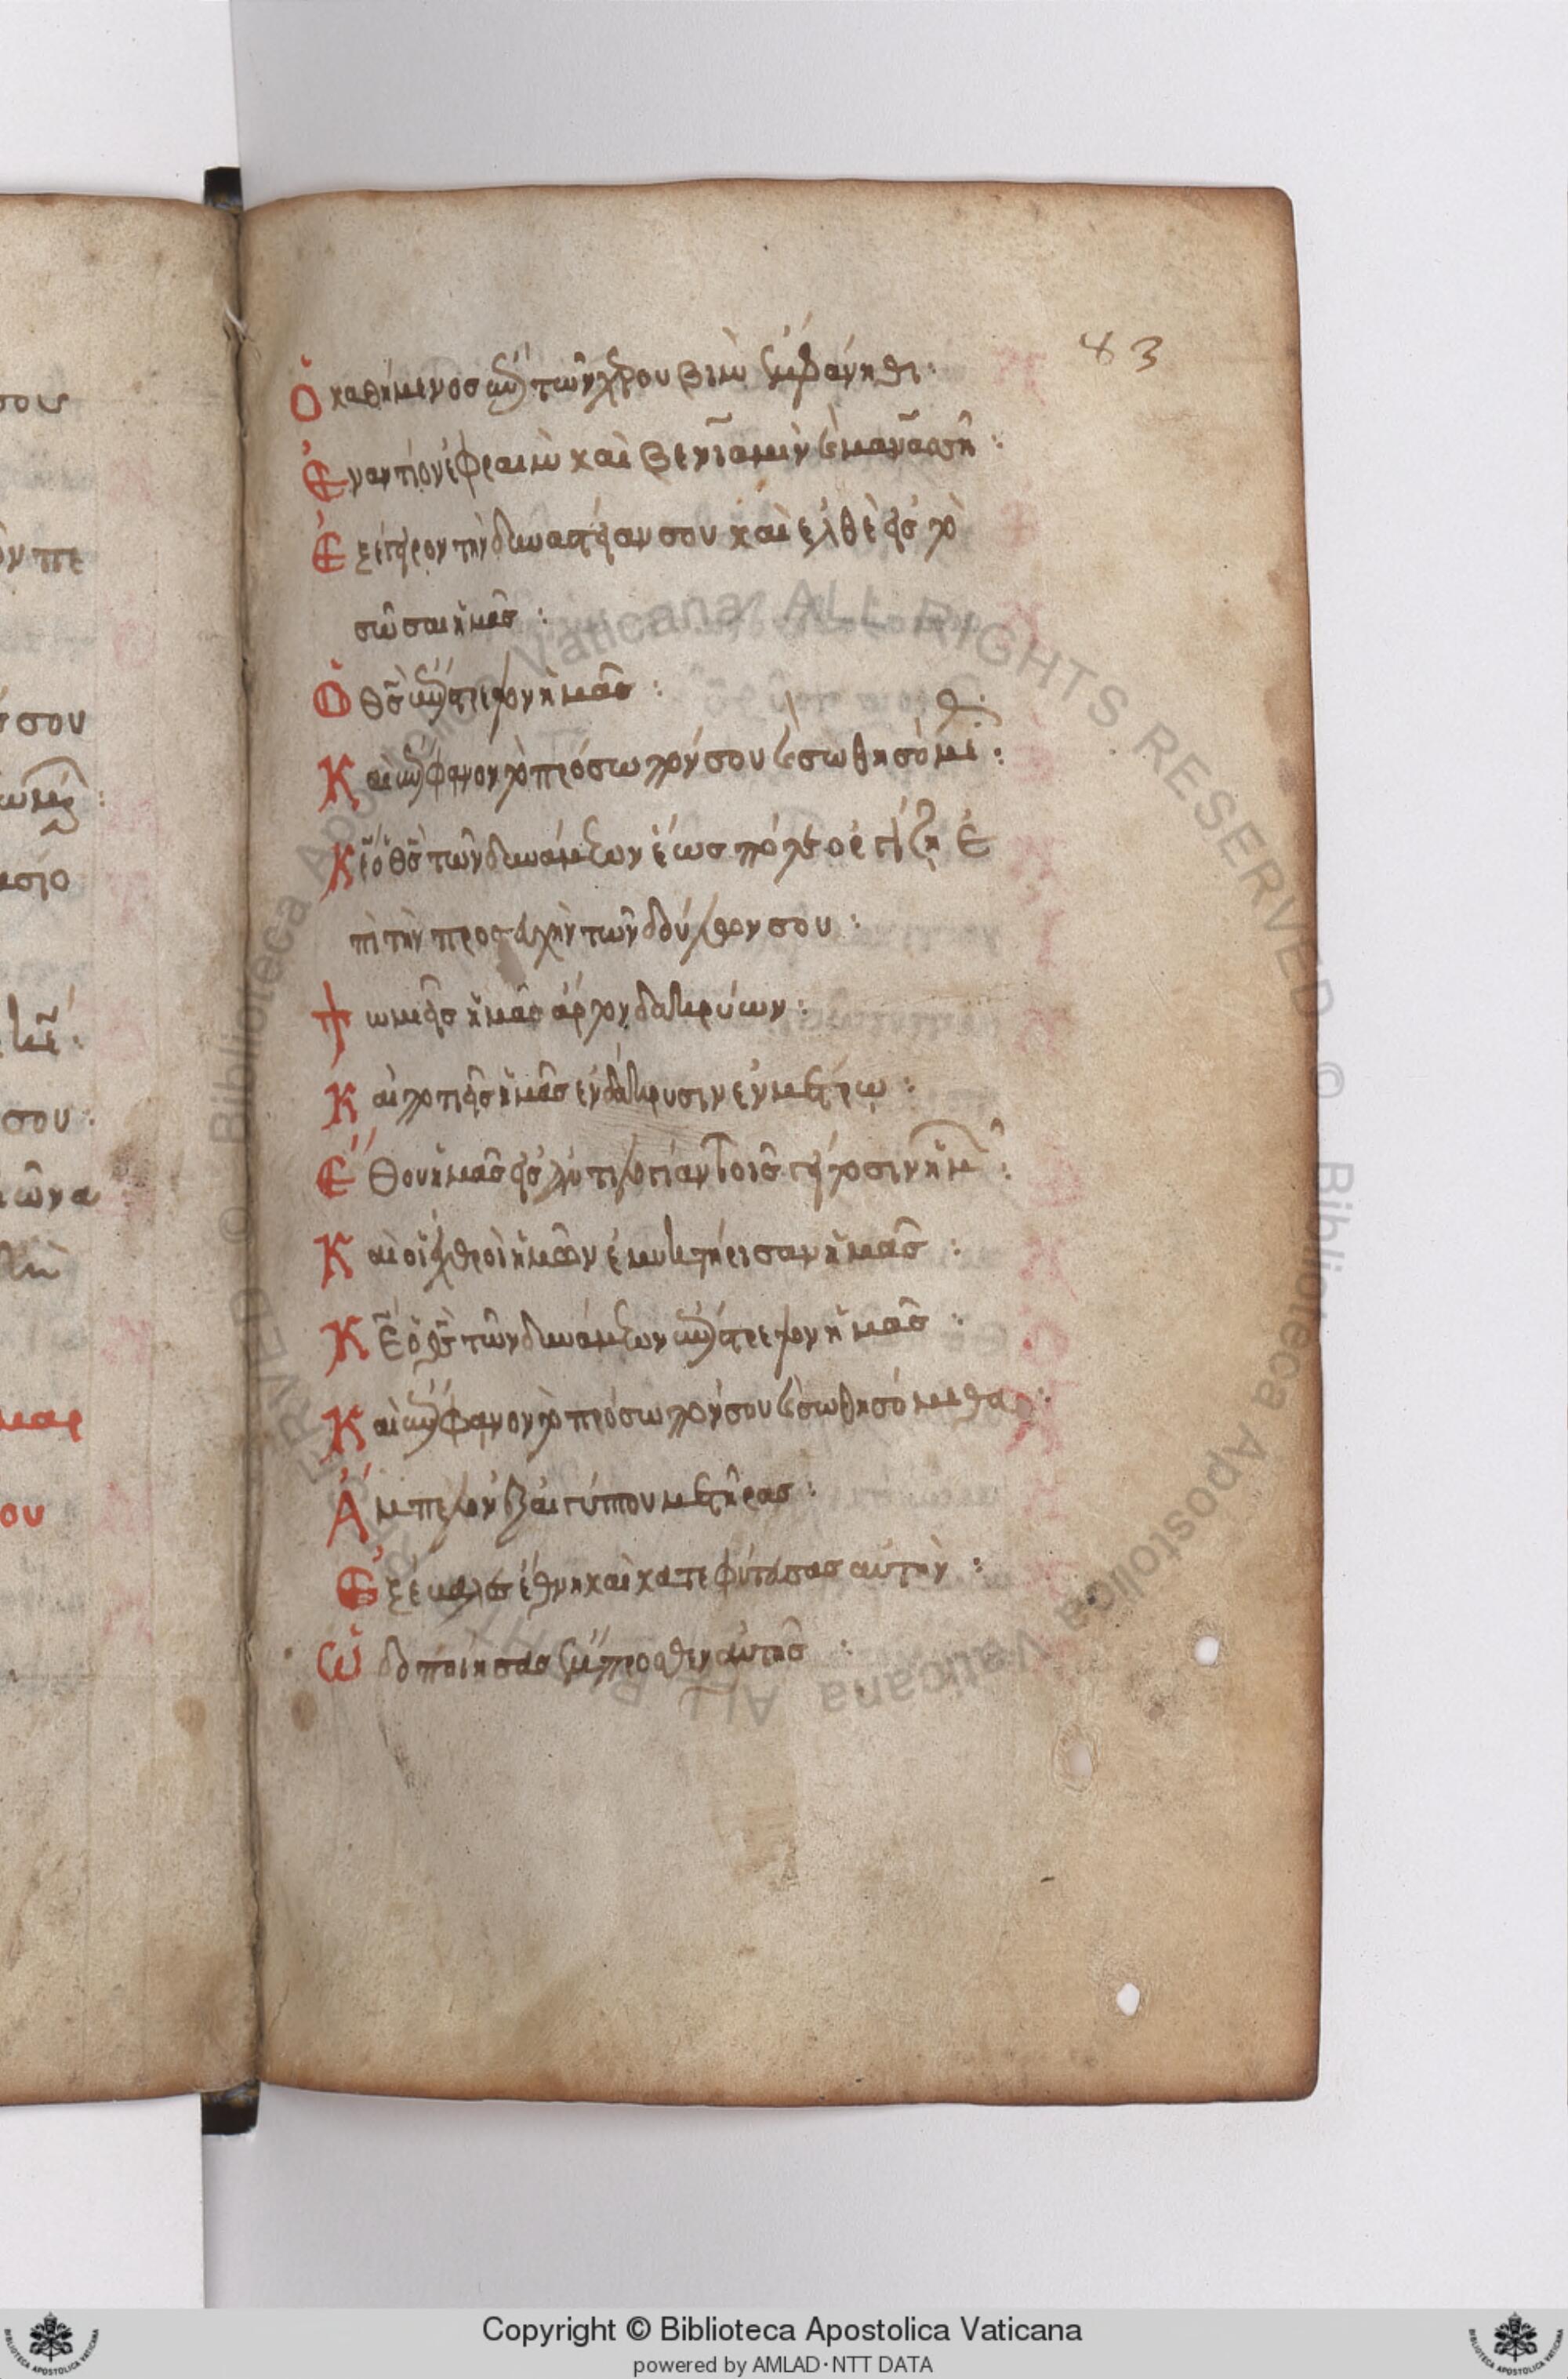 83
Ὁ καθήμενος ἐπὶ τῶν χερουβὶμ ἐμφάνηθι:
Ἐναντίον ἐφραὶμ καὶ βενϊαμὶν καὶ μανασσῆ:
Ἐξέγειρον τὴν δυναστείαν σου καὶ ἐλθὲ εἰς τὸ
σῶσαι ἡμᾶς:
Ὁ θς ἐπίστρεψον ἡμᾶς:
Καὶ ἐπίφανον τὸ πρόσωπόν σου καὶ σωθησόμεθα:
Κε ὁ θς τῶν δυνάμεων ἕως πότε ὀργίζῃ ἐ
πὶ τὴν προσευχὴν τῶν δούλων σου:
Ψωμιεῖς ἡμᾶς ἄρτον δακρύων:
Καὶ ποτιεῖς ἡμᾶς ἐν δάκρυσιν ἐν μέτρω:
Ἔθου ἡμᾶς εἰς ἀντιλογίαν τοῖς γείτοσιν ἡμῶν:
Καὶ οἱ ἐχθροὶ ἡμῶν ἐμυκτήρισαν ἡμᾶς:
Κε ὁ θς τῶν δυνάμεων ἐπίστρεψον ἡμᾶς:
Καὶ ἐπίφανον τὸ πρόσωπόν σου καὶ σωθησόμεθα:
Ἄμπελον ἐξ αἰγύπτου μετῆρας:
Ἐξέβαλες ἔθνη καὶ κατεφύτευσας αὐτὴν:
Ὡδοποίησας ἔμπροσθεν αὐτῆς:
Copyright © Biblioteca Apostolica Vaticana
powered by AMLAD·NTT DATA